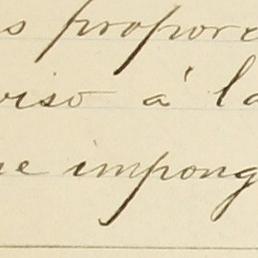 s propore
viso á la
ue impong